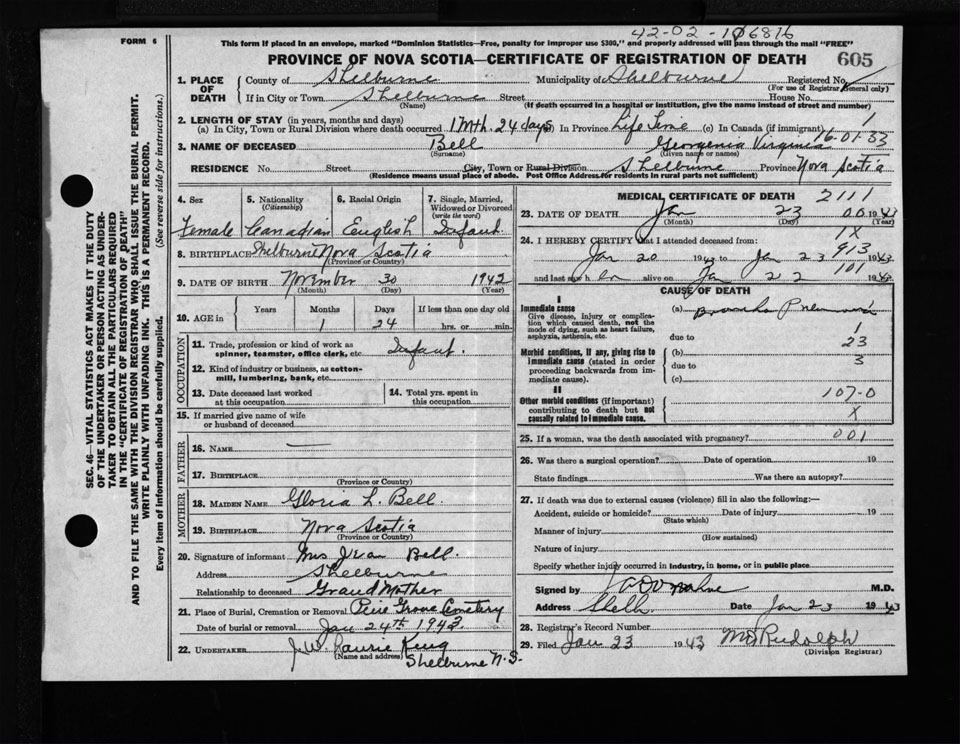 42-02-106816
FORM 6
This form if placed in an envelope, marked "Dominion Statistics—Free, penalty for improper use $300," and properly addressed will pass through the mail "FREE"
PROVINCE OF NOVA SCOTIA—CERTIFICATE OF REGISTRATION OF DEATH 605
1. PLACE OF DEATH County of Shelburne Municipality of Shelburne Registered No.
(For use of Registrar General only)
If in City or Town Shelburne Street House No.
(Name) (If death occurred in a hospital or institution, give the name instead of street and number)
2. LENGTH OF STAY (in years, months and days) 1
(a) In City, Town or Rural Division where death occurred 1 Mth. 24 days In Province Life Time (c) In Canada (if immigrant)
16-01-33
3. NAME OF DECEASED Bell Georgenia Virginia
(Surname) (Given name or names)
RESIDENCE No. Street City, Town or Rural Division Shelburne Province Nova Scotia
(Residence means usual place of abode. Post Office Address for residents in rural parts not sufficient)
4. Sex 5. Nationality (Citizenship) 6. Racial Origin 7. Single, Married, Widowed or Divorced (write the word)
Female Canadian English Infant
8. BIRTHPLACE Shelburne Nova Scotia
(Province or Country)
9. DATE OF BIRTH November 30 1942
(Month) (Day) (Year)
10. AGE in Years Months Days If less than one day old
1 24 hrs. or min.
OCCUPATION
11. Trade, profession or kind of work as spinner, teamster, office clerk, etc Infant.
12. Kind of industry or business, as cotton-mill, lumbering, bank, etc.
13. Date deceased last worked at this occupation
14. Total yrs. spent in this occupation
15. If married give name of wife or husband of deceased
FATHER
16. NAME —
17. BIRTHPLACE
(Province or Country)
MOTHER
18. MAIDEN NAME Gloria L. Bell.
19. BIRTHPLACE Nova Scotia
(Province or Country)
20. Signature of informant Mrs Ivan Bell.
Address Shelburne
Relationship to deceased Grand Mother
21. Place of Burial, Cremation or Removal Pine Grove Cemetery
Date of burial or removal Jan 24th 1943.
22. UNDERTAKER J.W. Laurie King
(Name and address) Shelburne N.S.
MEDICAL CERTIFICATE OF DEATH 2111
23. DATE OF DEATH Jan 23 00 1943
(Month) (Day) (Year)
1X
24. I HEREBY CERTIFY that I attended deceased from:
913
Jan 20 1943 to Jan 23 1943
101
and last saw h er alive on Jan 22 1943
CAUSE OF DEATH
I
Immediate cause (a) Broncho Pneumonia
Give disease, injury or complication which caused death, not the mode of dying, such as heart failure, asphyxia, asthenia, etc.
due to 1
23
Morbid conditions, if any, giving rise to immediate cause (stated in order proceeding backwards from immediate cause).
(b) 3
due to
(c)
II
107-0
Other morbid conditions (if important) contributing to death but not causally related to immediate cause.
X
25. If a woman, was the death associated with pregnancy? 001
26. Was there a surgical operation? Date of operation 19
State findings Was there an autopsy?
27. If death was due to external causes (violence) fill in also the following:—
Accident, suicide or homicide? Date of injury 19
(State which)
Manner of injury
(How sustained)
Nature of injury
Specify whether injury occurred in industry, in home, or in public place
Signed by Donahue M.D.
Address Shelb. Date Jan 23 1943
28. Registrar's Record Number
29. Filed Jan 23 1943 Rudolph
(Division Registrar)
SEC. 46—VITAL STATISTICS ACT MAKES IT THE DUTY
OF THE UNDERTAKER OR PERSON ACTING AS UNDER-
TAKER TO OBTAIN ALL THE PARTICULARS REQUIRED
IN THE "CERTIFICATE OF REGISTRATION OF DEATH"
AND TO FILE THE SAME WITH THE DIVISION REGISTRAR WHO SHALL ISSUE THE BURIAL PERMIT.
WRITE PLAINLY WITH UNFADING INK. THIS IS A PERMANENT RECORD.
Every item of information should be carefully supplied. (See reverse side for instructions.)